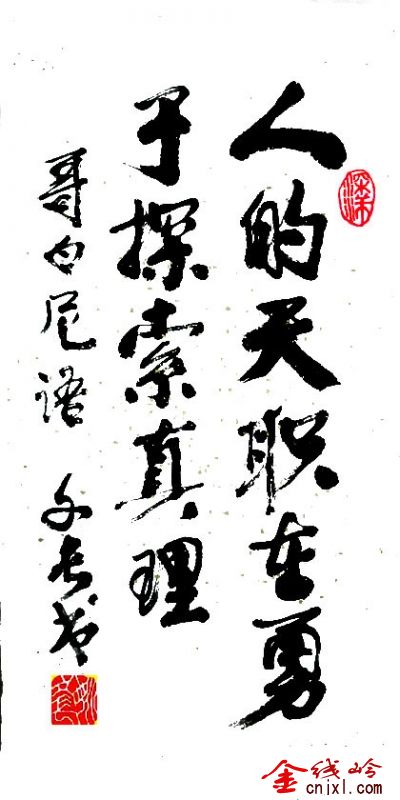 人的天职在勇
于探索真理
哥白尼语 文长书
金线岭
cnjxl.com